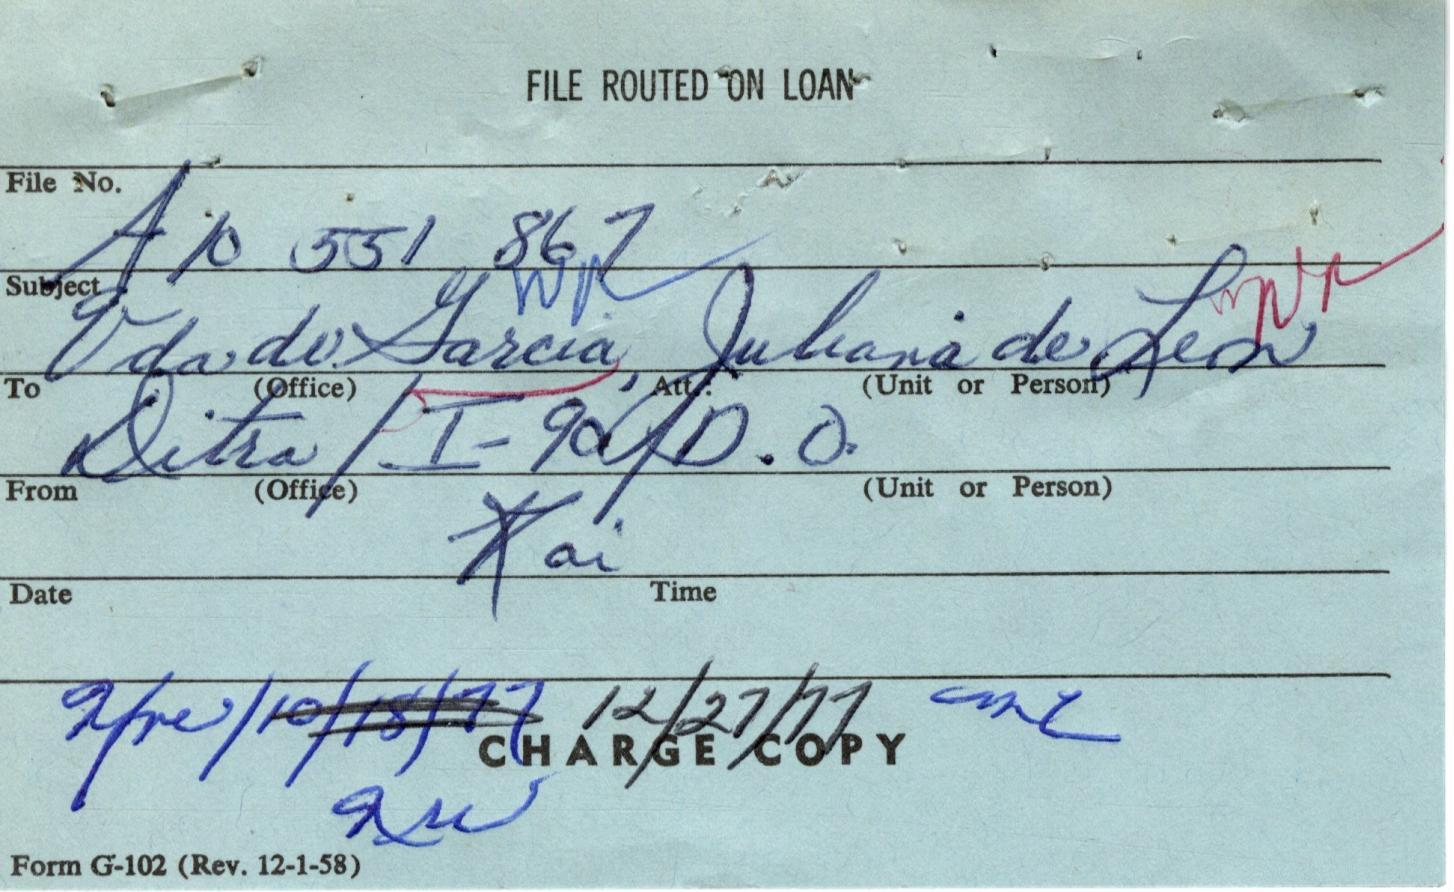 FILE ROUTED ON LOAN
File No.
A 10 551 867
Subject
WR
WR
Vda de Garcia, Juliana de Leon
To (Office) Att.: (Unit or Person)
Ditra / I-90 / D.O.
From (Office) (Unit or Person)
Kai
Date Time
10/18/77 12/27/77
CHARGE COPY
Form G-102 (Rev. 12-1-58)